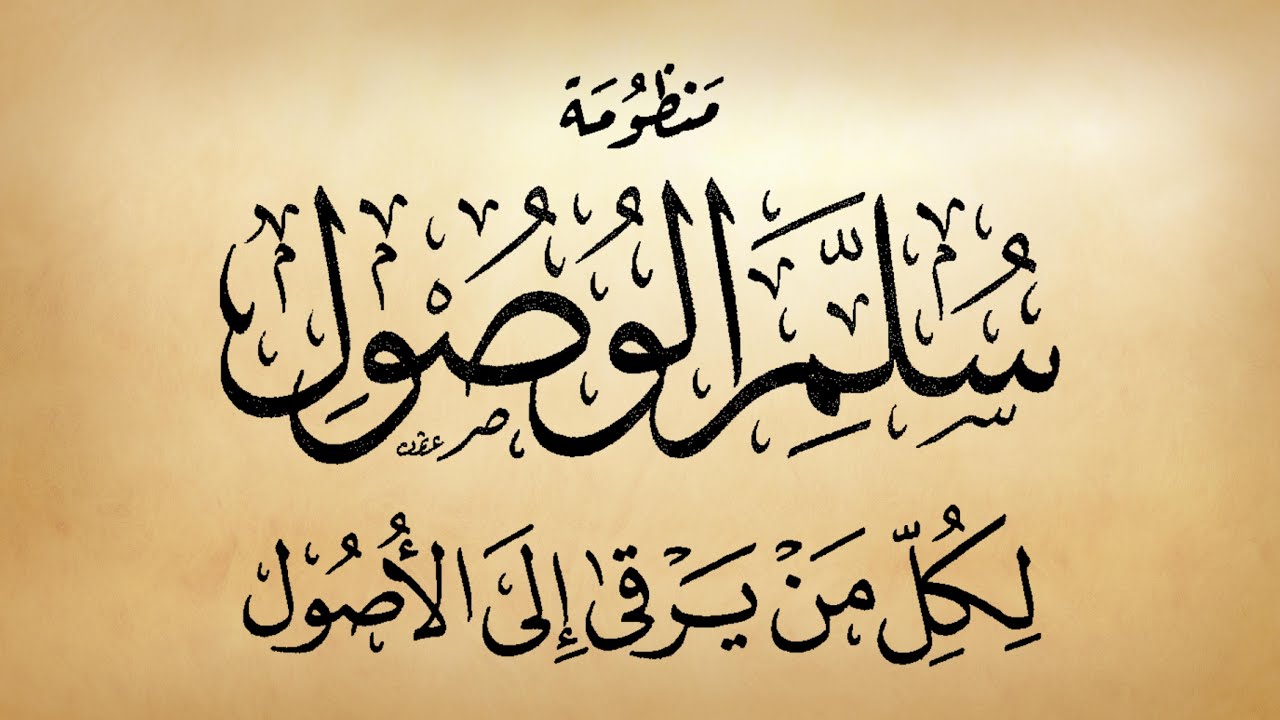 مَنظُومَة
سُلَّمِ الوُصُولِ
لِكُلِّ مَنْ يَرْقَىٰ إِلَىَ الأُصُول